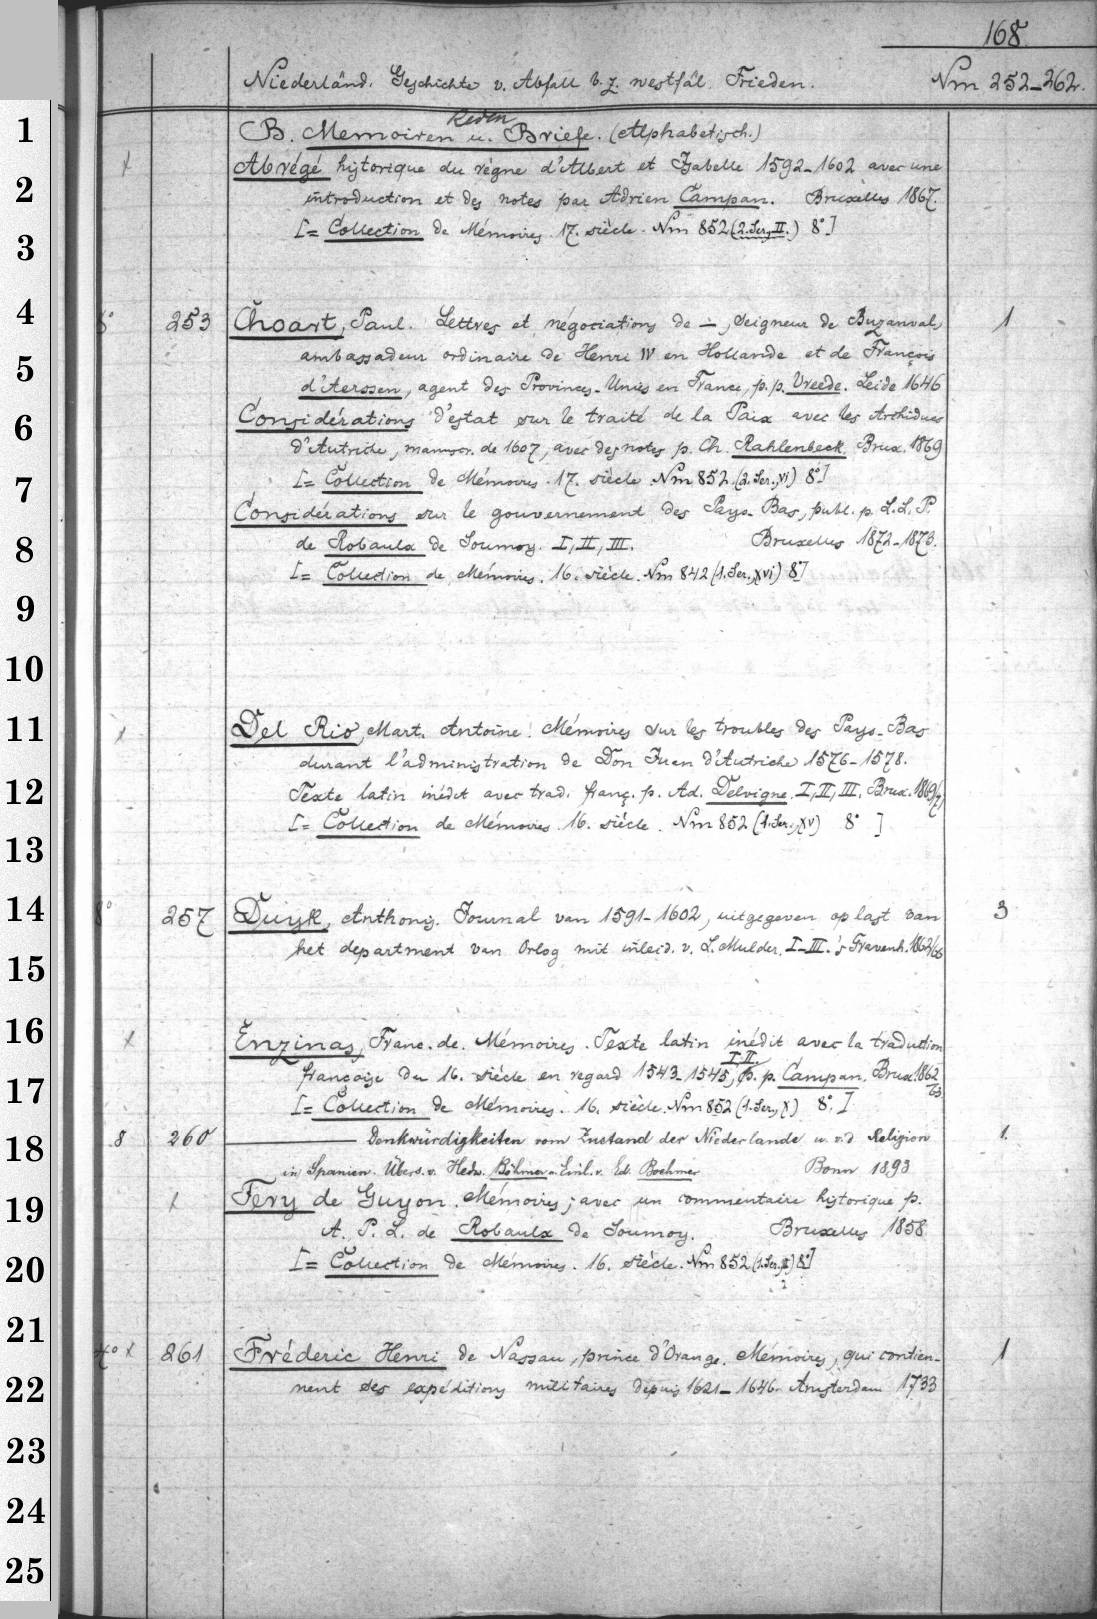 168
Niederländ. Geschichte v. Abfall b. z. westfäl. Frieden. Nm 252-262.
Reden
1 B. Memoiren u. Briefe. (Alphabetisch.)
x Abrégé historique du règne d'Albert et Isabelle 1592-1602 avec une
2 introduction et des notes par Adrien Campan. Bruxelles 1867.
3 [= Collection de Mémoires. 17. siècle. Nm 852 (2. Ser., II.) 8°]
4 8° 253 Choart, Paul. Lettres et négociations de —, Seigneur de Buzanval, 1
ambassadeur ordinaire de Henri IV en Hollande et de François
5 d'Aerssen, agent des Provinces-Unies en France, p. p. Vreede. Leide 1646
6 Considérations d'estat sur le traité de la Paix avec les Archiducs
d'Autriche, manuscr. de 1607, avec des notes p. Ch. Rahlenbeck. Brux. 1869
7 [= Collection de Mémoires. 17. siècle. Nm 852. (2. Ser., VI) 8°]
Considérations sur le gouvernement des Pays-Bas, publ. p. L. L. P.
8 de Robaulx de Soumoy. I, II, III. Bruxelles 1872-1873.
[= Collection de Mémoires. 16. siècle. Nm 842 (1. Ser., XVI) 8°]
9
10
11 x Del Rio, Mart. Antoine. Mémoires sur les troubles des Pays-Bas
durant l'administration de Don Juan d'Autriche 1576-1578.
12 Texte latin inédit avec trad. franç. p. Ad. Delvigne. I, II, III. Brux. 1869/71
[= Collection de Mémoires. 16. siècle. Nm 852 (1. Ser., XV) 8° ]
13
14 8° 257 Duyk, Anthony. Journal van 1591-1602, uitgegeven op last van 3
het department van Orlog mit inleid. v. L. Mulder. I-III. 's Gravenh. 1862/66
15
16 x Enzinas, Franc. de. Mémoires. Texte latin inédit avec la traduction
I-II.
17 française du 16. siècle en regard 1543-1545, p. p. Campan. Brux. 1862/63
[= Collection de Mémoires. 16. siècle. Nm 852 (1. Ser., X) 8°.]
18 8 260 ——— Denkwürdigkeiten vom Zustand der Niederlande u. v. d. Religion 1.
in Spanien. Übers. v. Hedw. Böhmer u. Einl. v. Ed. Boehmer Bonn 1893
19 x Féry de Guyon. Mémoires; avec un commentaire historique p.
A. P. L. de Robaulx de Soumoy. Bruxelles 1858.
20 [= Collection de Mémoires. 16. siècle. Nm 852 (1. Ser., 8°]
21
4° x 261 Fréderic Henri de Nassau, prince d'Orange. Mémoires, qui contien- 1
22 nent ses expéditions militaires depuis 1621-1646. Amsterdam 1733
23
24
25